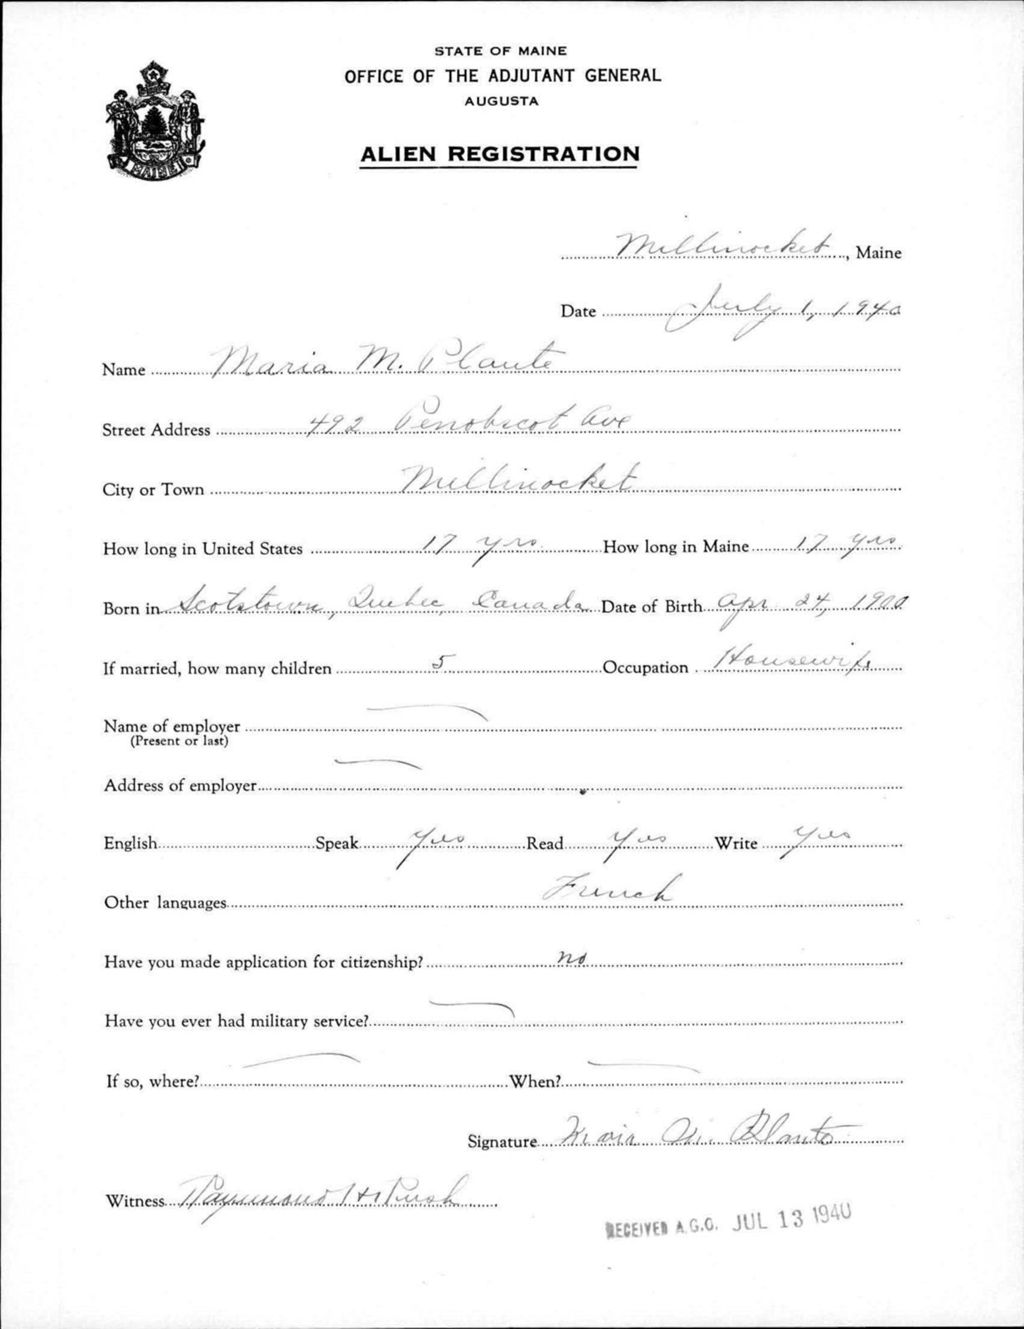 STATE OF MAINE
OFFICE OF THE ADJUTANT GENERAL
AUGUSTA
ALIEN REGISTRATION
MAINE
Millinocket, Maine
Date July 1, 1940
Name Maria M. Plante
Street Address 492 Penobscot Ave
City or Town Millinocket
How long in United States 17 yrs How long in Maine 17 yrs
Born in Scotstown, Quebec, Canada Date of Birth Apr 24, 1900
If married, how many children 5 Occupation Housewife
Name of employer
(Present or last)
Address of employer
English Speak Yes Read Yes Write Yes
Other languages French
Have you made application for citizenship? no
Have you ever had military service?
If so, where? When?
Signature Maria M. Plante
Witness Raymond H Rush
RECEIVED A.G.O. JUL 13 1940